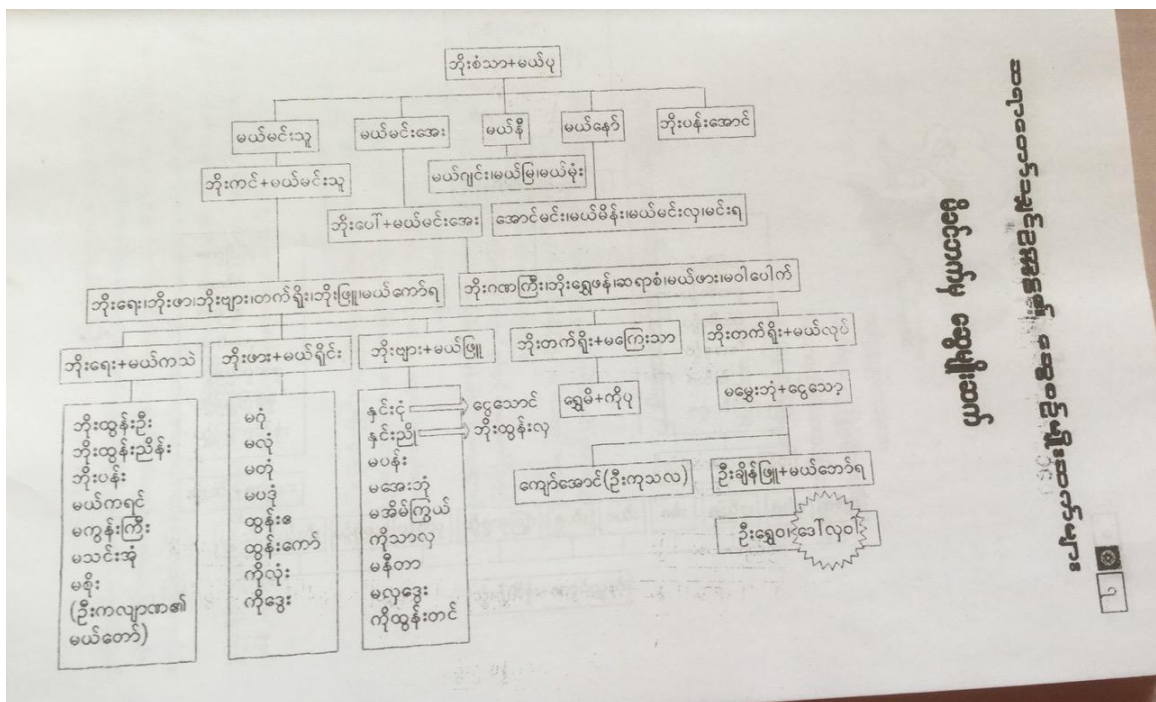 ဘိုးစံသာ+မယ်ပု
မယ်မင်းသူ
မယ်မင်းအေး
မယ်နီ
မယ်နော်
ဘိုးပန်းအောင်
ဘိုးကင်+မယ်မင်းသူ
မယ်ဂျင်း၊မယ်မြ၊မယ်မုံး
ဘိုးပေါ်+မယ်မင်းအေး
အောင်မင်း၊မယ်မိန်း၊မယ်မင်းလှ၊မင်းရ
ဘိုးရေး၊ဘိုးဖာ၊ဘိုးဗျား၊တက်ရိုး၊ဘိုးဖြူ၊မယ်ကော်ရ
ဘိုးဂဏကြီး၊ဘိုးရွှေဖန်၊ဆရာစံ၊မယ်ဖား၊မဝါပေါက်
ဘိုးရေး+မယ်ကသဲ
ဘိုးဖား+မယ်ရှိုင်း
ဘိုးဗျား+မယ်ဖြူ
ဘိုးတက်ရိုး+မကြေးသာ
ဘိုးတက်ရိုး+မယ်လုပ်
ဘိုးထွန်းဦး
ဘိုးထွန်းညိန်း
ဘိုးပန်း
မယ်ကရင်
မကွန်းကြီး
မသင်းအုံ
မစိုး
(ဦးကလျာဏ၏
မယ်တော်)
မဂုံ
မလုံ
မတုံ
မပဒုံ
ထွန်းဧ
ထွန်းကော်
ကိုလုံး
ကိုဒွေး
နှင်းငုံ ငွေသောင်
နှင်းညို ဘိုးထွန်းလှ
မပန်း
မအေးဘုံ
မအိမ်ကြွယ်
ကိုသာလှ
မနီတာ
မလှဒွေး
ကိုထွန်းတင်
ရွှေမိ+ကိုပု
မမွှေးဘုံ+ငွေသော့
ကျော်အောင်(ဦးကုသလ)
ဦးချိန်ဖြူ+မယ်ဘော်ရ
ဦးရွှေဝ၊ဒေါ်လှဝါ
မိခင်ဘက်မှ ဆွေမျိုးဆက်